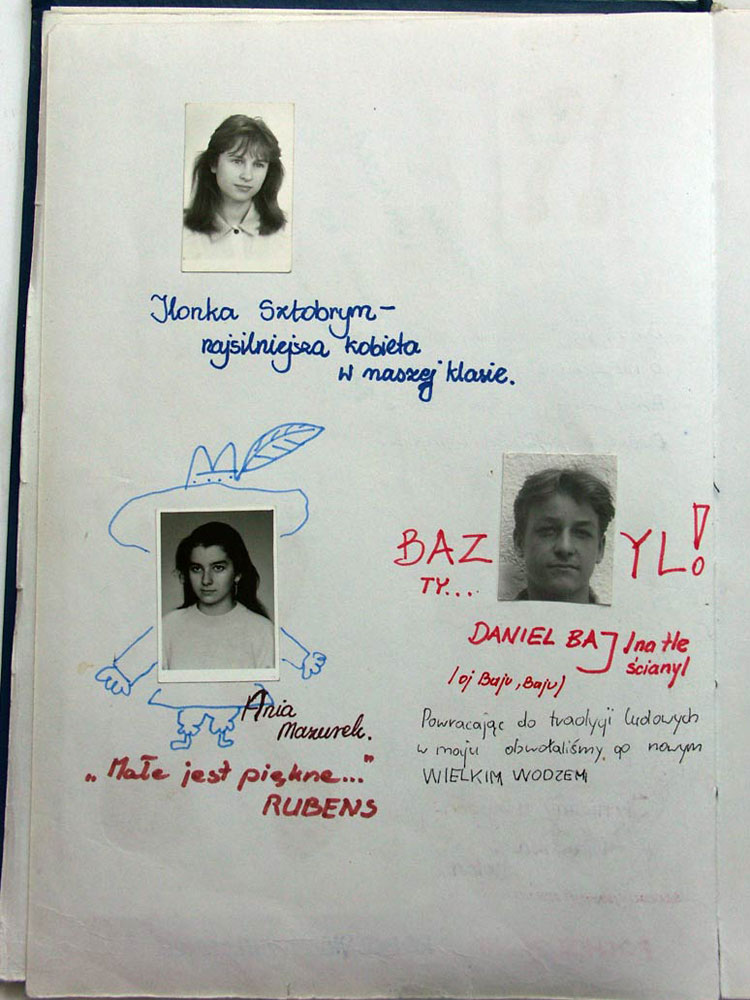 Ilonka Sztobrym –
najsilniejsza kobieta
w naszej klasie.
BAZ YL!
TY...
DANIEL BAJ /na tle
ściany/
/oj Baju, Baju/
Ania
Mazurek.
Powracając do tradycji ludowych
w maju obwołaliśmy go nowym
WIELKIM WODZEM
„Małe jest piękne..."
RUBENS